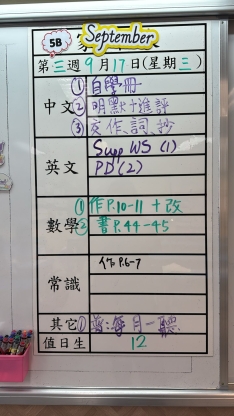 5B
September
第三週9月17日(星期三)
中文
① 自學冊
② 明默+進評
③ 交作、詞、抄
英文
Supp WS (1)
PD (2)
數學
① 作P.10-11 + 改
② 書P.44-45
常識
作 P.6-7
其它
① 普:每月一聽
值日生
12